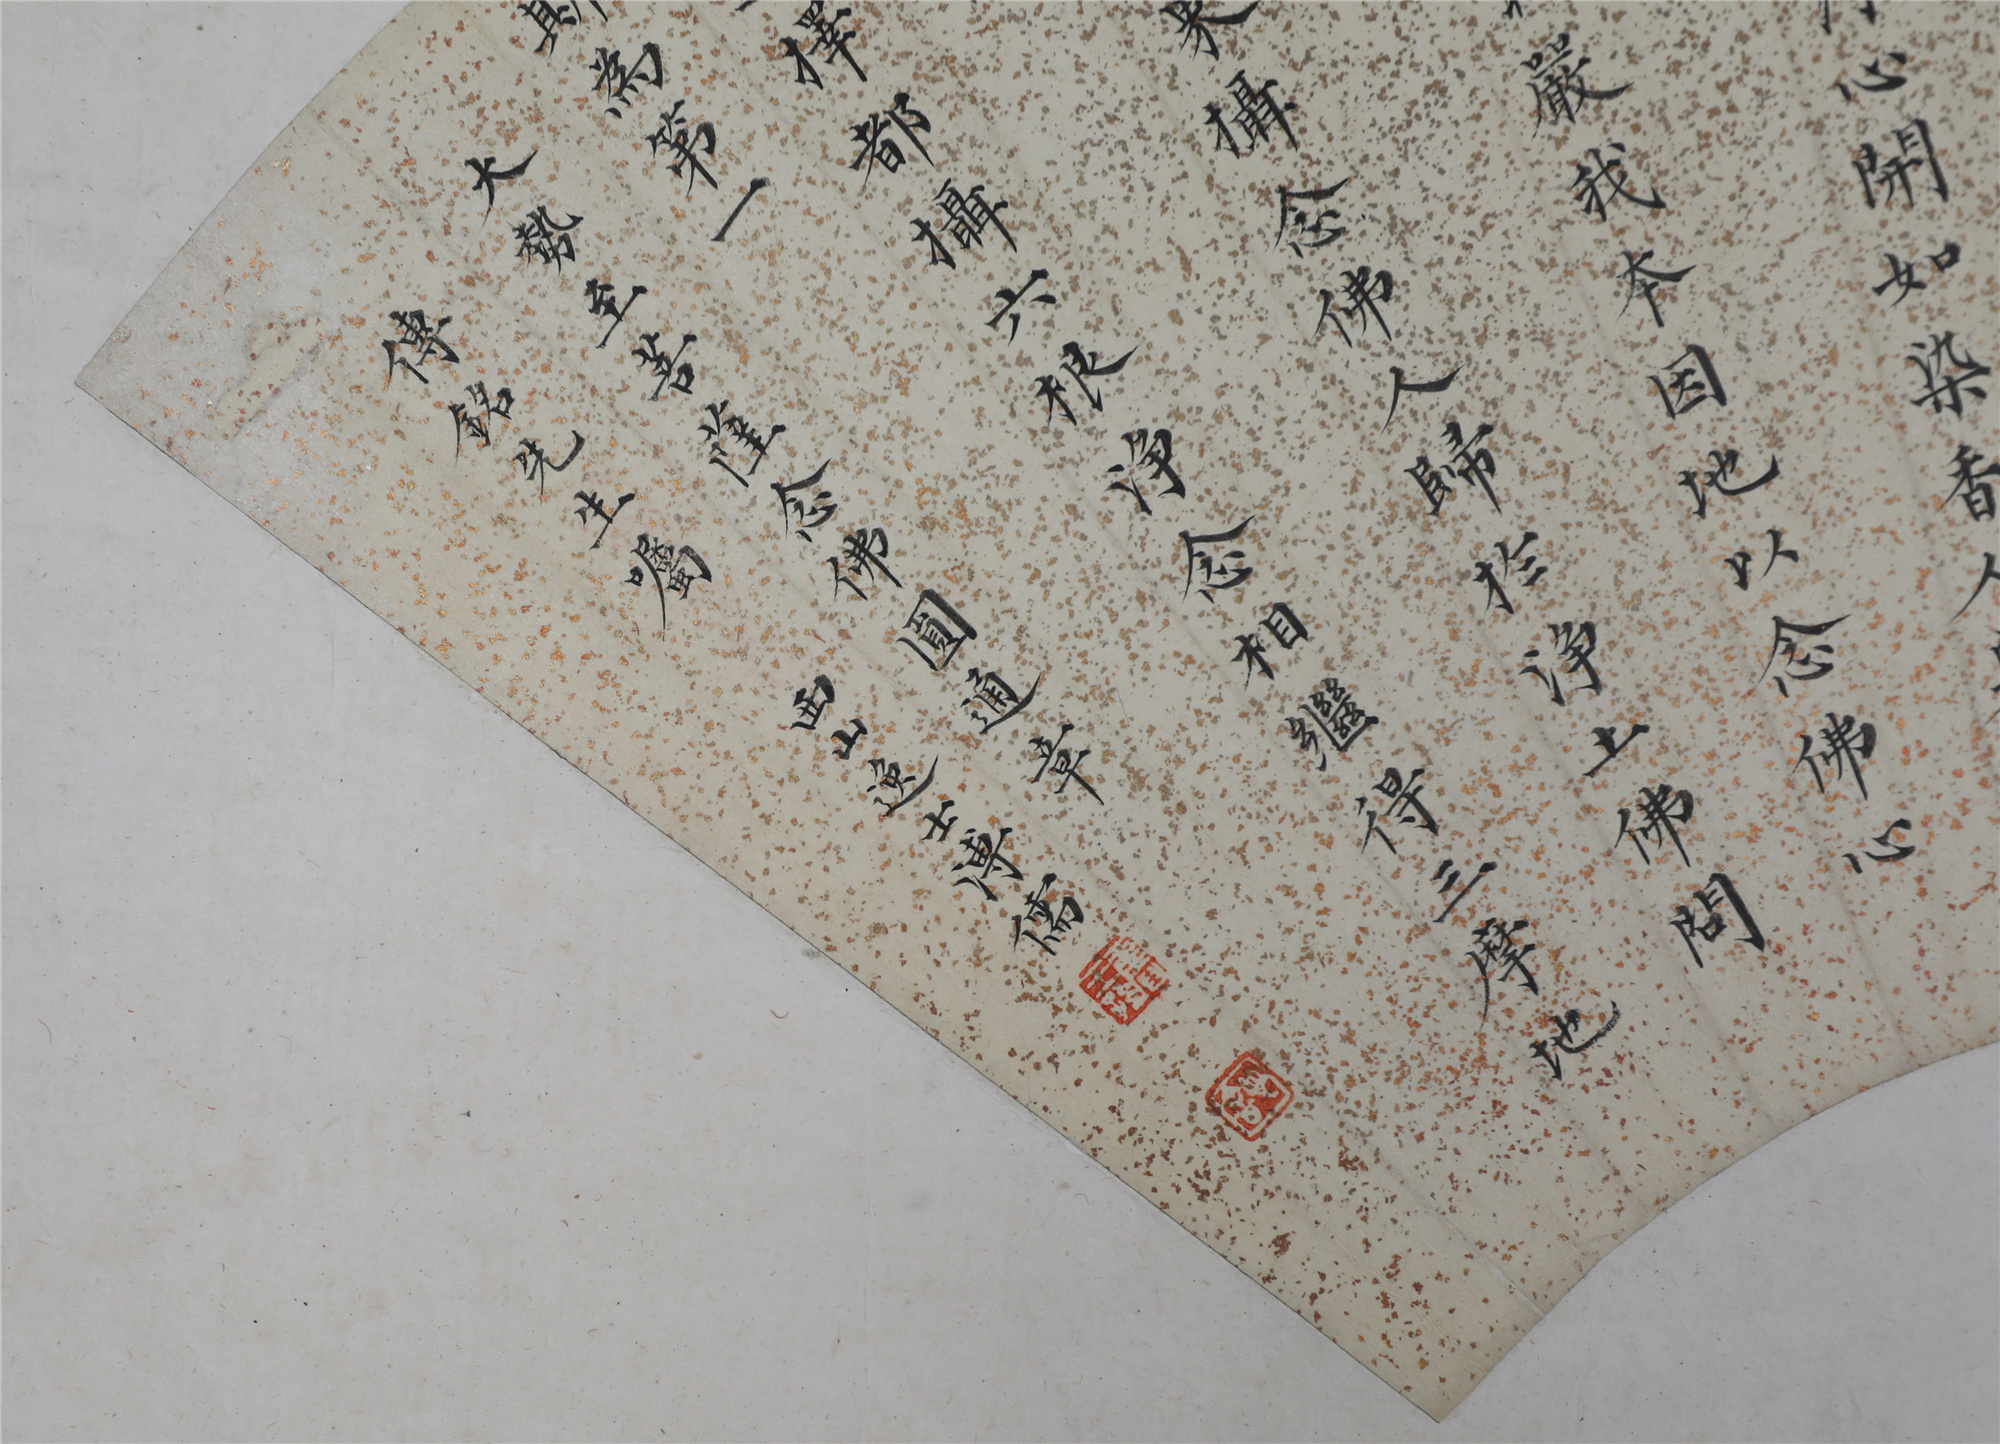 心開如染香人
嚴我本因地以念佛心
界攝念佛人歸於淨土佛問
擇都攝六根淨念相繼得三摩地
斯為第一
大勢至菩薩念佛圓通章
傳銘先生囑 西山逸士溥儒